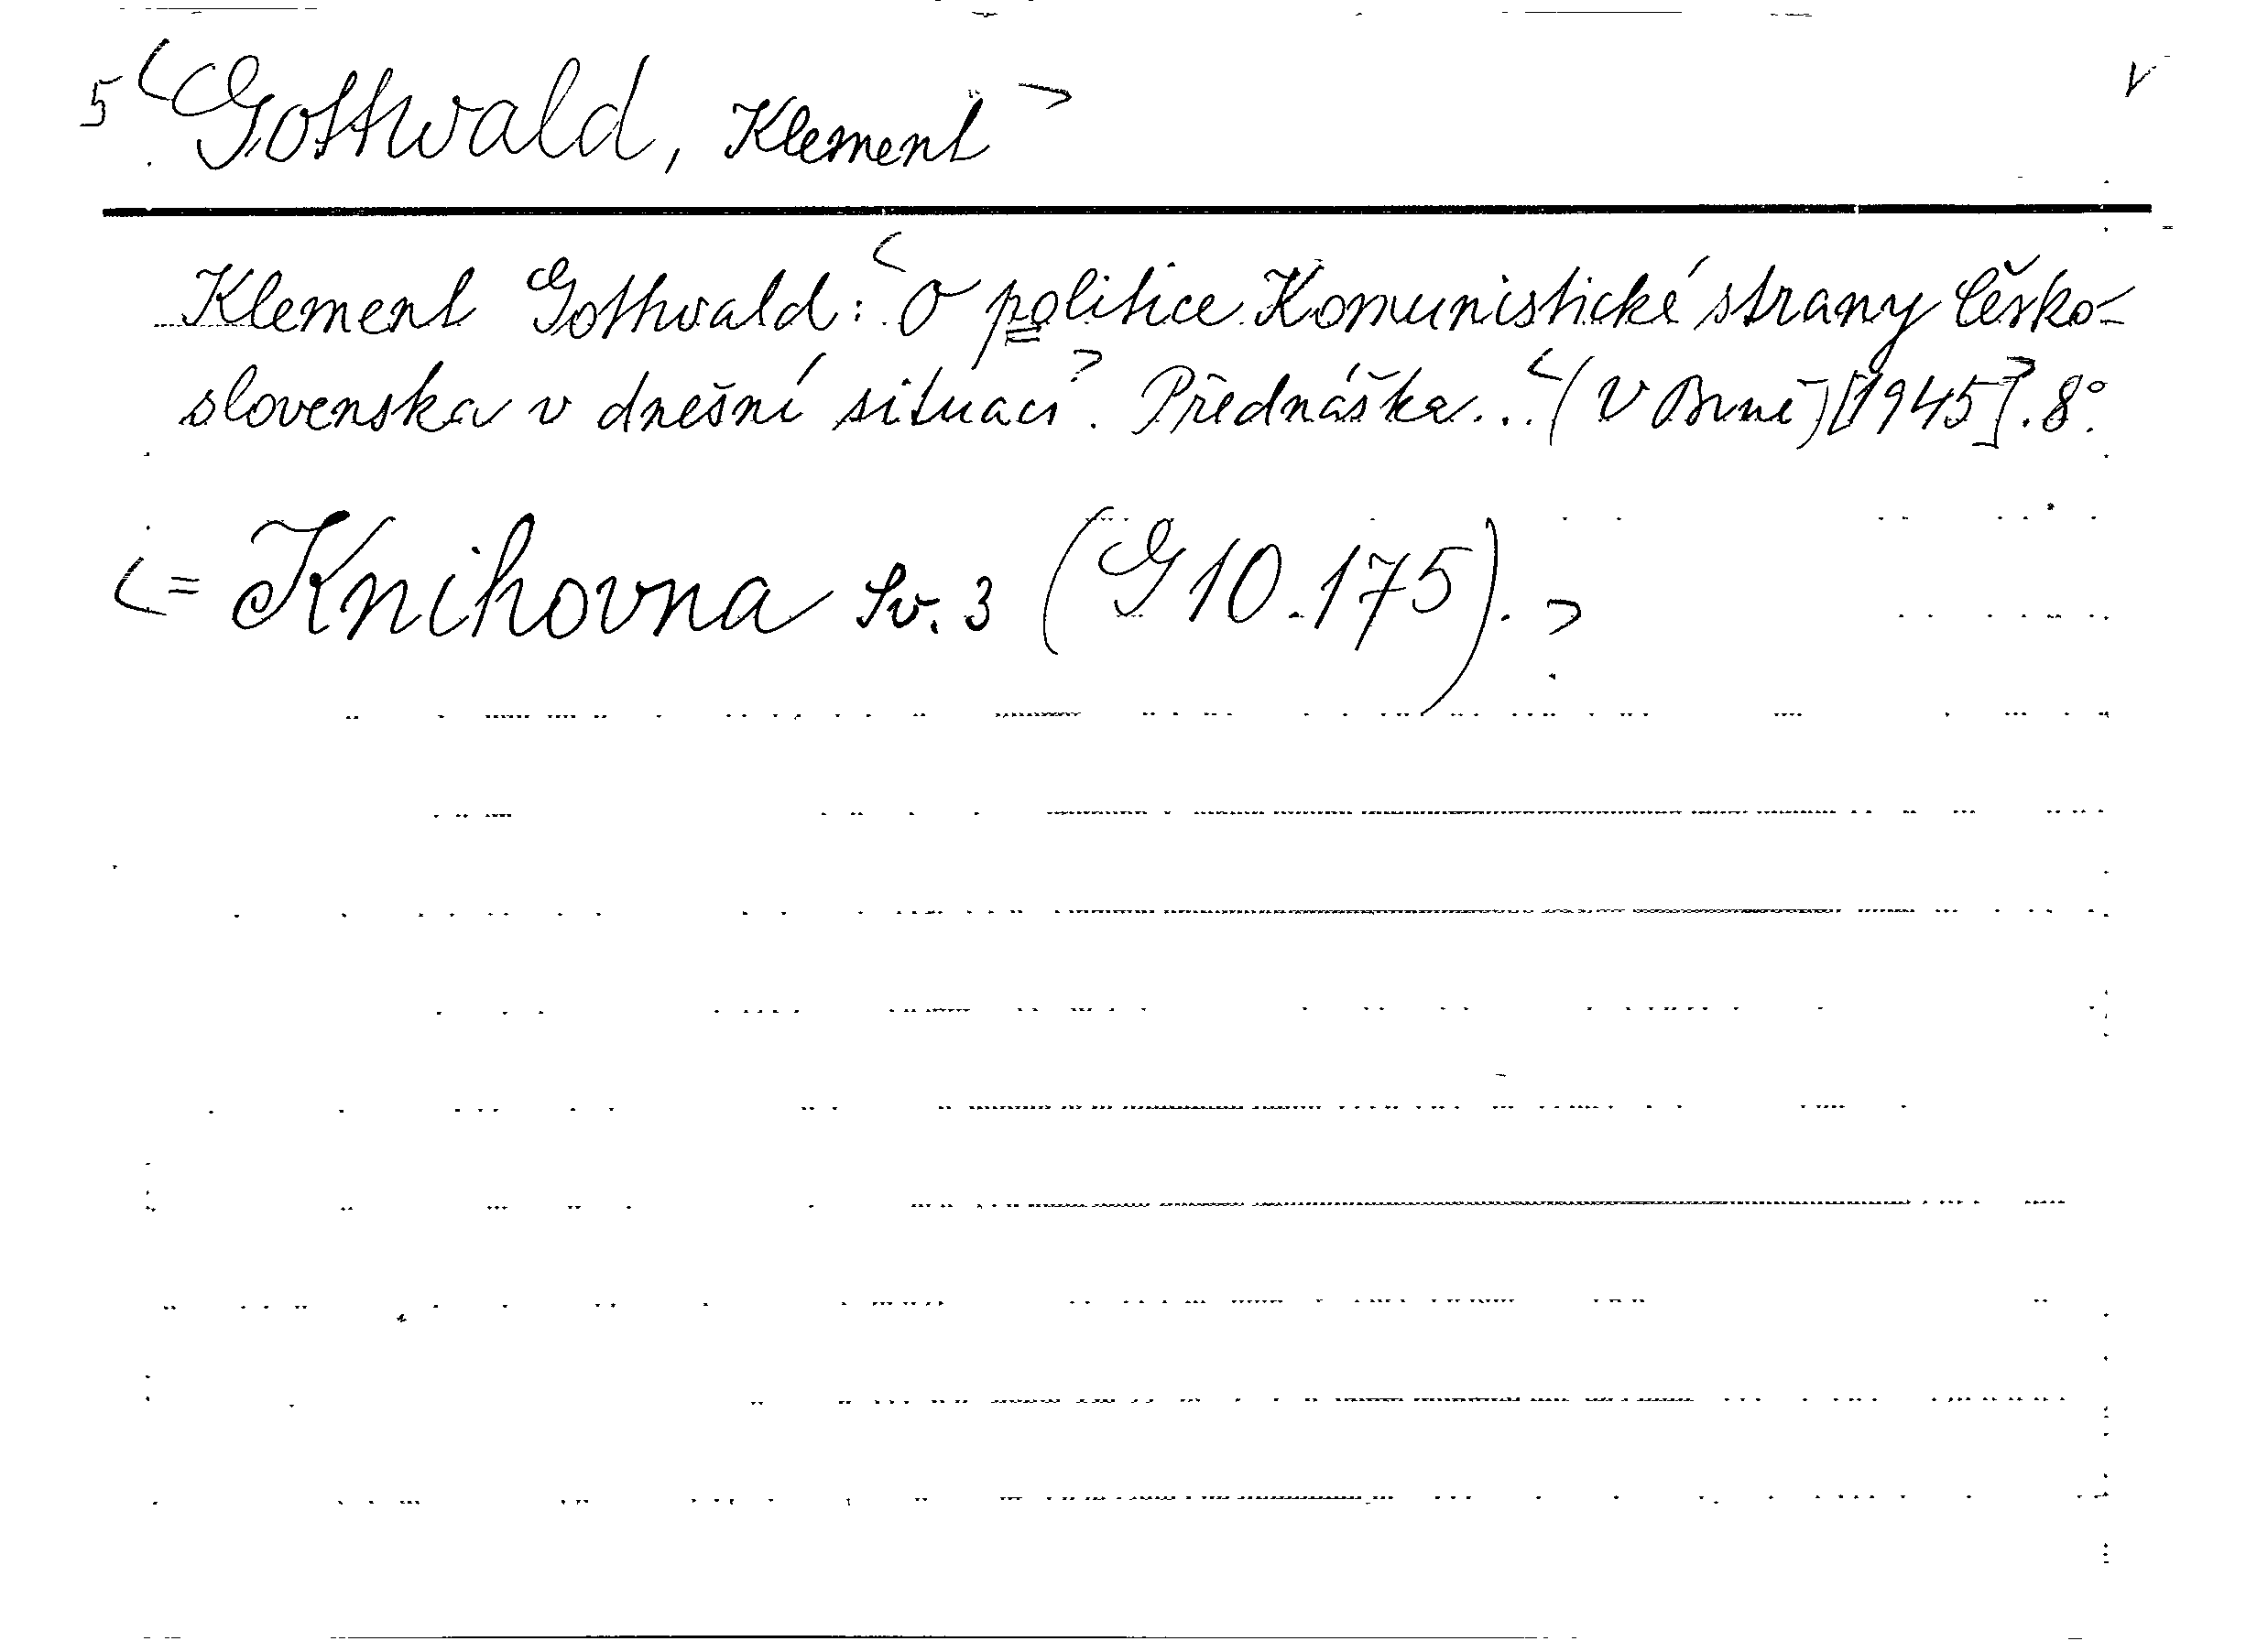 5 <Gottwald, Klement> V
Klement Gottwald: <O politice Komunistické strany Česko-
slovenska v dnešní situaci>. Přednáška... <(V Brně) [1945]>. 8°.
<= Knihovna Sv. 3 (G 10.175).>